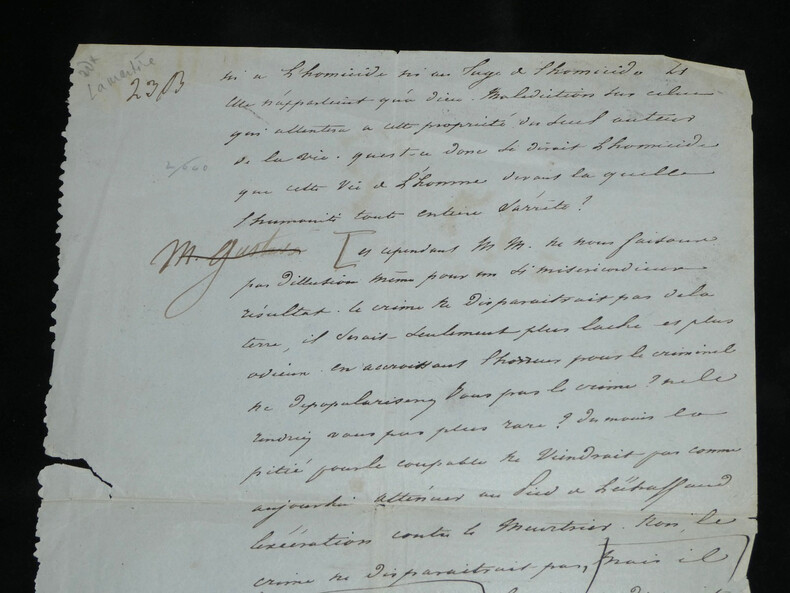 Lamartine
23 B
ni a L'homicide ni au Juge de l'homicide Et
Elle n'appartient qu'a dieu. Malediction sur celui
qui attentera a cette propriété du seul auteur
de la vie. qu'est-ce donc se dirait L'homicide
que cette Vie de L'homme devant la quelle
l'humanité toute entiere s'arrête?
M. Gustave
Et cependant M M. ne nous faisons
pas d'illusion même pour un si misericordieux
résultat. le crime ne disparaitrait pas de la
terre, il serait seulement plus lache et plus
odieux. en accroissant l'horreur pour le criminel
ne depopulariserez Vous pas le crime? ne le
rendriez vous pas plus rare? du moins la
pitié pour le coupable ne Viendrait pas comme
aujourd'hui attenuer au Pied de L'échaffaud
l'exécration contre le Meurtrier. Non, le
crime ne disparaitrait pas, mais il